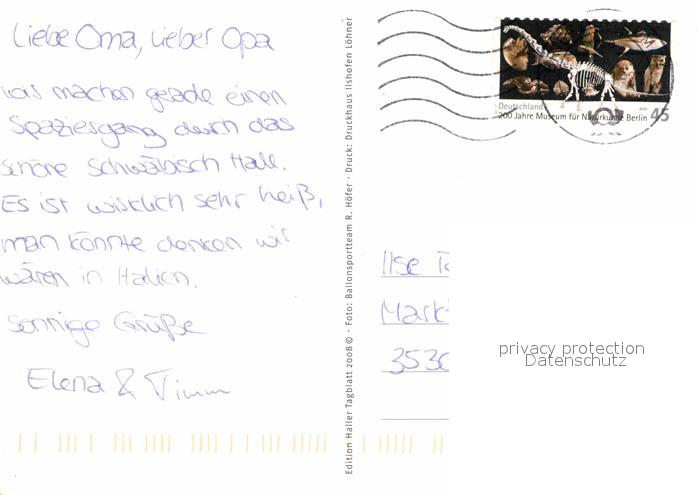 Liebe Oma, lieber Opa
wir machen gerade einen
Spaziergang durch das
schöne Schwäbisch Hall.
Es ist wirklich sehr heiß,
man könnte denken wir
wären in Italien.
Sonnige Grüße
Elena & Timm
Edition Haller Tagblatt 2008 © · Foto: Ballonsportteam R. Höfer · Druck: Druckhaus Ilshofen Löhner
Deutschland
200 Jahre Museum für Naturkunde Berlin 45
Ilse
Mark
3536
privacy protection
Datenschutz